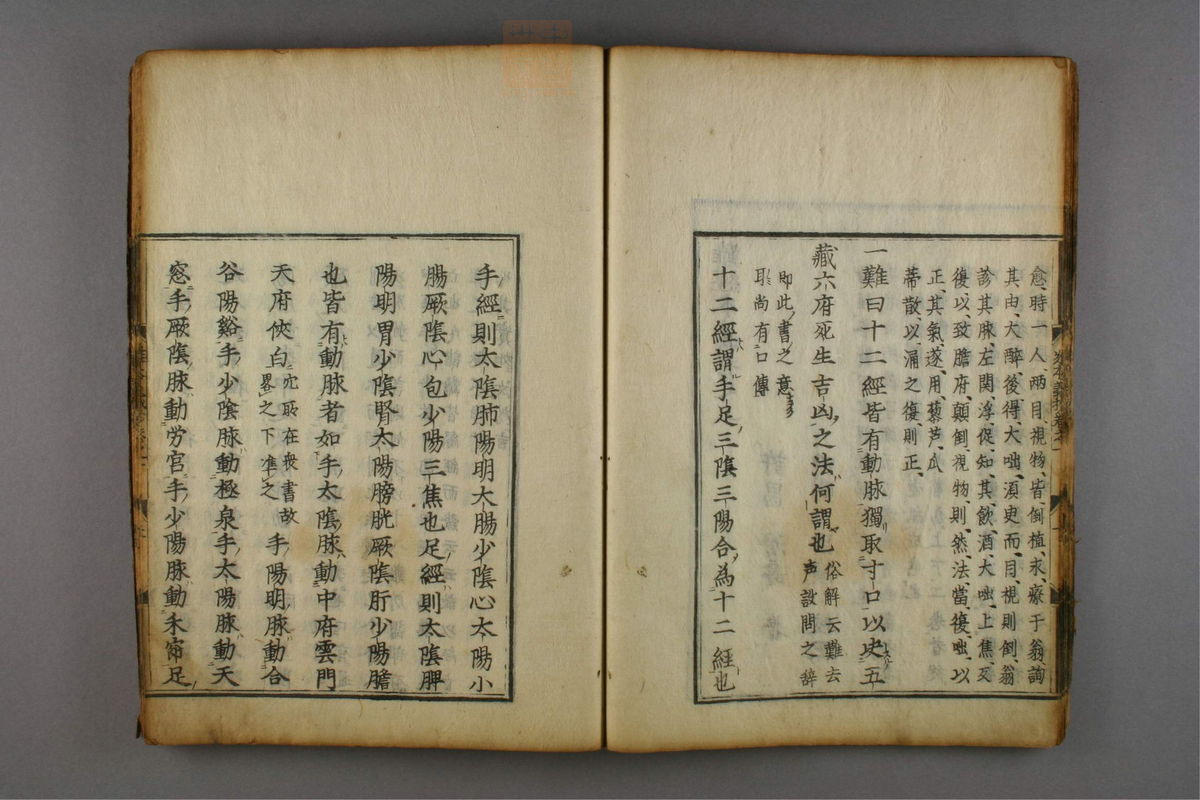 愈時一人兩目視物皆倒植求療于翁詢
其由大醉後得大咄湏㬰而目視則倒翁
診其脉左関浮促知其飲酒大咄上焦反
復以致膽府顛倒視物則然法當復咄以
正其氣遂用藜芦瓜
蒂散以湧之復則正
一難曰十二經皆有動脉獨取寸口以决五
藏六府死生吉凶之法何謂也
俗解云難去
声設問之辞
即此書之意
耳尚有口傳
十二經謂手足三隂三陽合為十二經也
手經則太隂肺陽明大腸少隂心太陽小
腸厥隂心包少陽三焦也足經則太隂脾
陽明胃少隂腎太陽膀胱厥隂肝少陽膽
也皆有動脉者如手太隂脉動中府雲門
天府侠白
穴㪽在衆書故
畧之下凖之
手陽明脉動合
谷陽谿手少隂脉動極泉手太陽脉動天
窓手厥隂脉動労宮手少陽脉動禾窌足